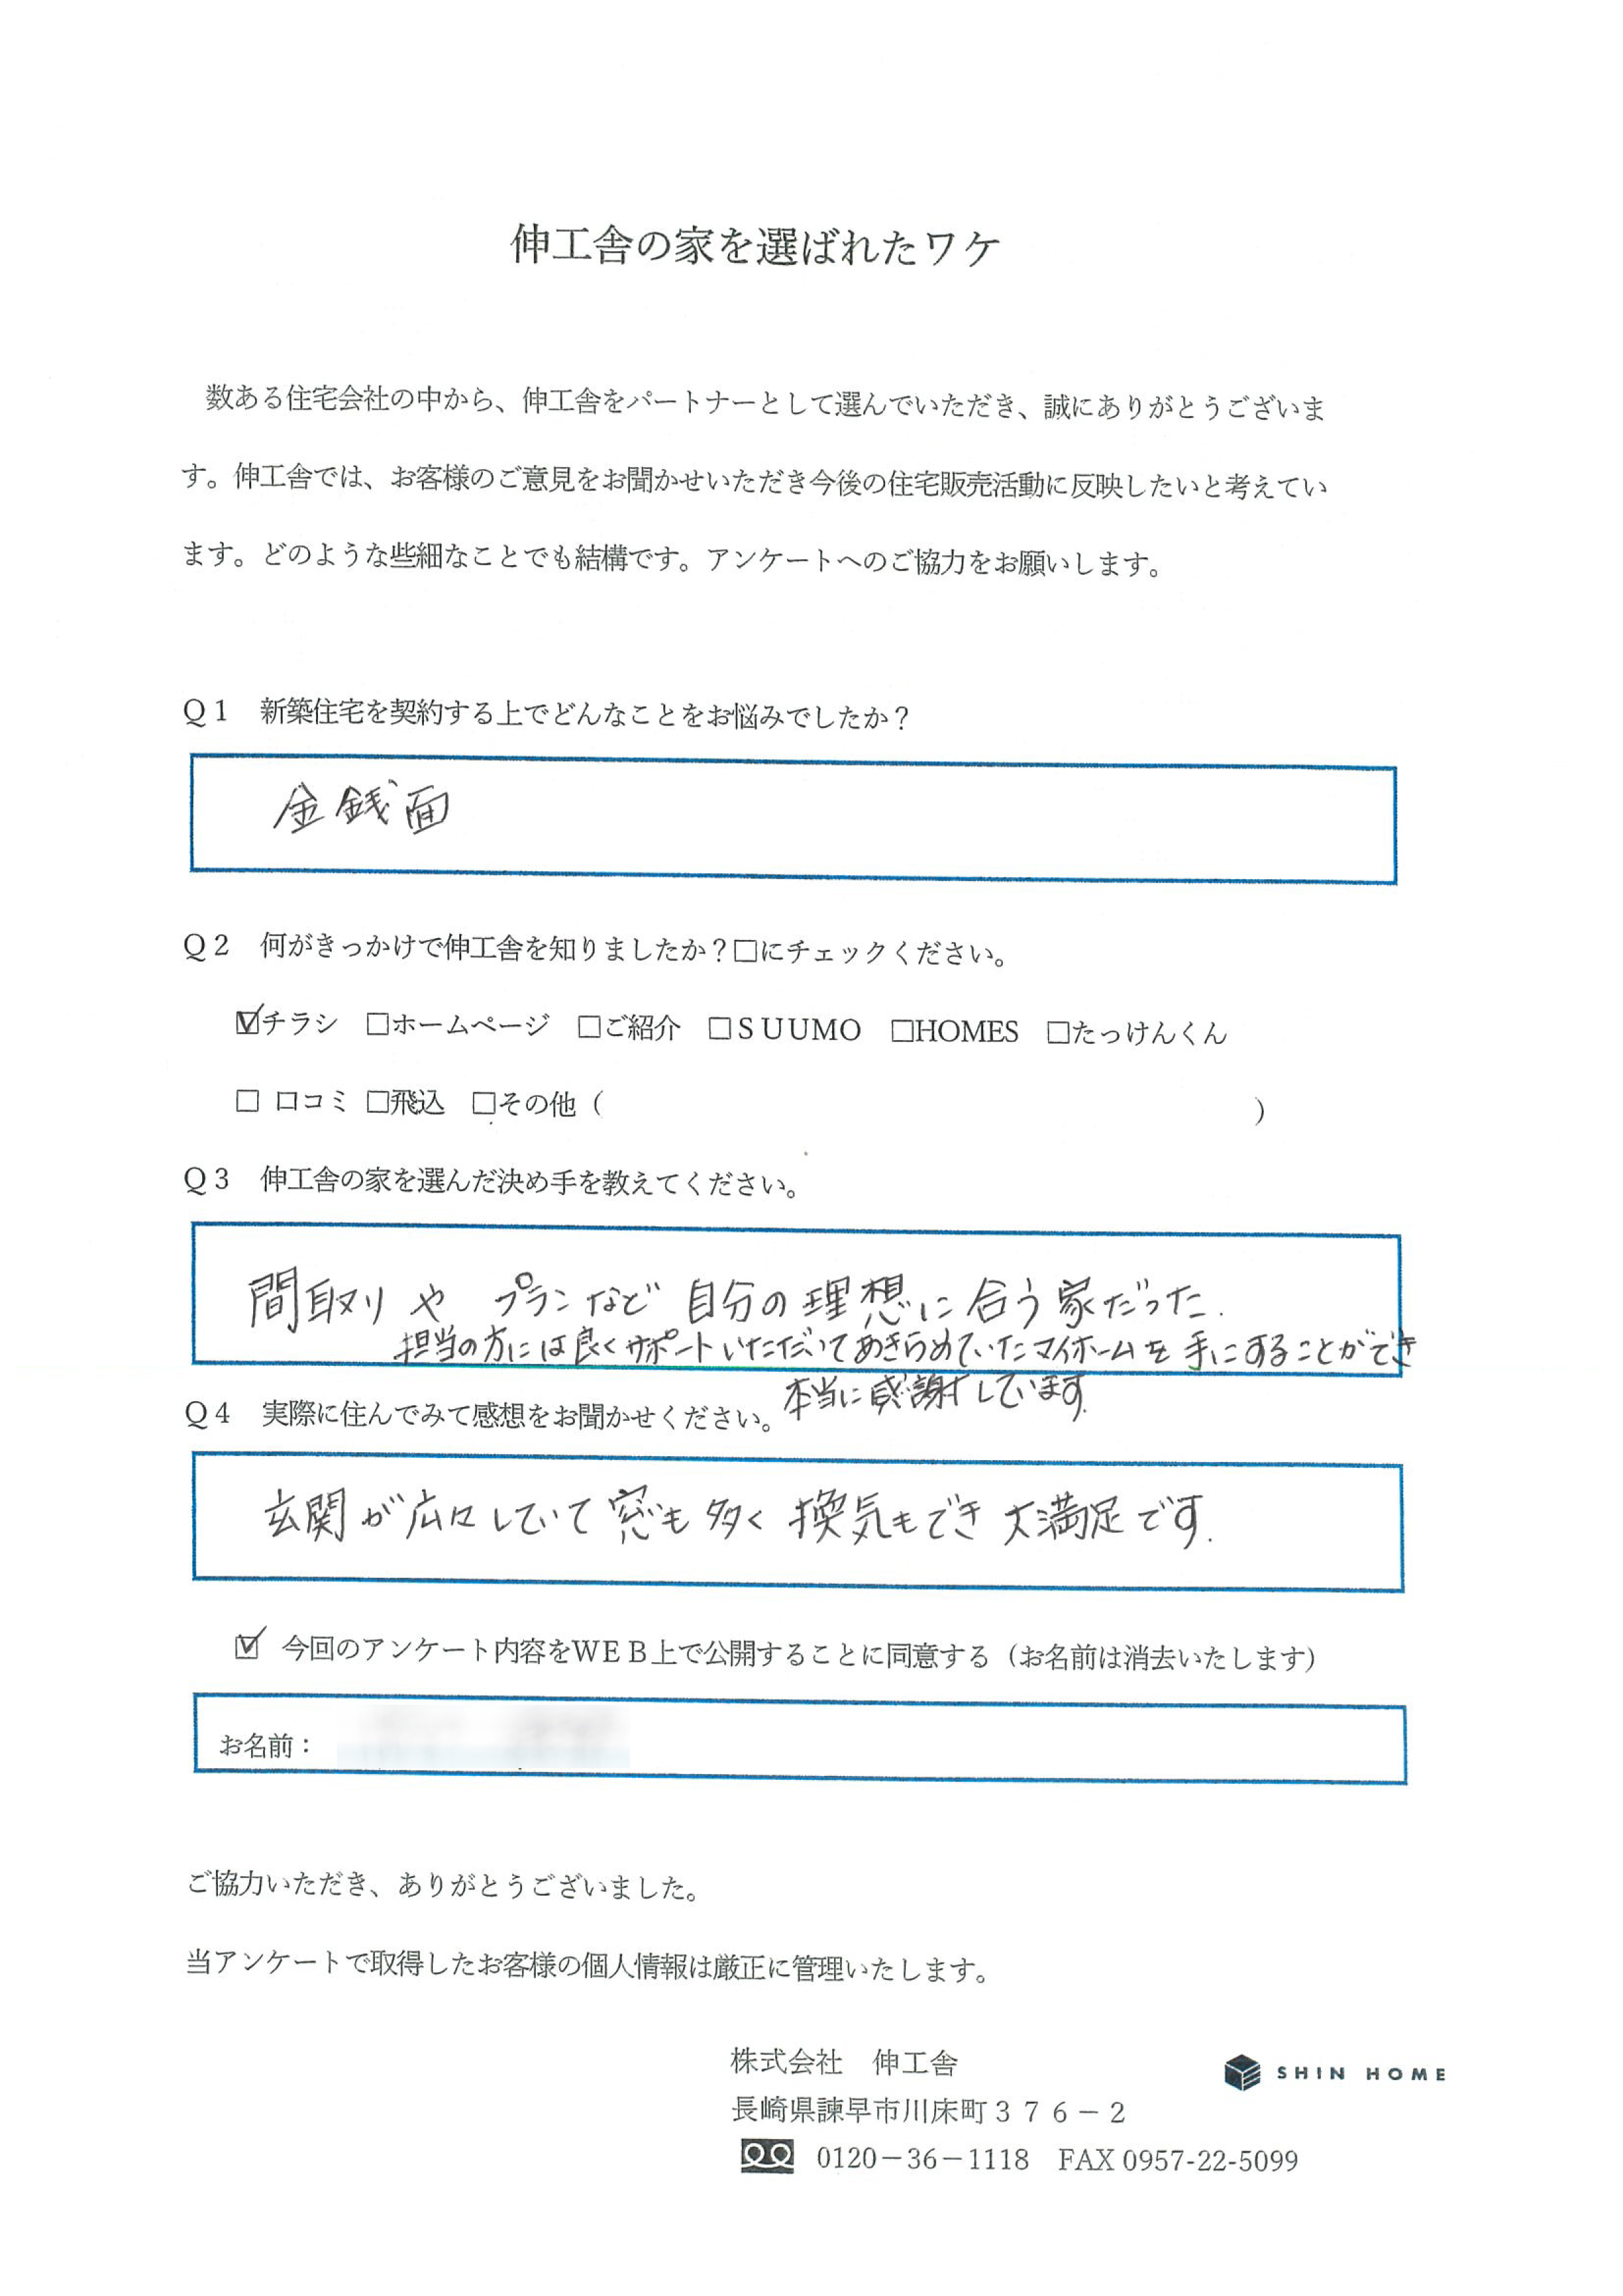 伸工舎の家を選ばれたワケ
数ある住宅会社の中から、伸工舎をパートナーとして選んでいただき、誠にありがとうございま
す。伸工舎では、お客様のご意見をお聞かせいただき今後の住宅販売活動に反映したいと考えてい
ます。どのような些細なことでも結構です。アンケートへのご協力をお願いします。
Q1　新築住宅を契約する上でどんなことをお悩みでしたか？
金銭面
Q2　何がきっかけで伸工舎を知りましたか？□にチェックください。
☑チラシ　□ホームページ　□ご紹介　□SUUMO　□HOMES　□たっけんくん
□ 口コミ □飛込　□その他（　　　　　　　　　　）
Q3　伸工舎の家を選んだ決め手を教えてください。
間取りや プランなど 自分の理想に合う家だった.
担当の方には良くサポートいただいてあきらめていたマイホームを手にすることができ
本当に感謝しています.
Q4　実際に住んでみて感想をお聞かせください。
玄関が広々していて窓も多く換気もでき大満足です.
☑ 今回のアンケート内容をWEB上で公開することに同意する（お名前は消去いたします）
お名前：
ご協力いただき、ありがとうございました。
当アンケートで取得したお客様の個人情報は厳正に管理いたします。
株式会社　伸工舎
SHIN HOME
長崎県諫早市川床町３７６－２
0120－36－1118　FAX 0957-22-5099